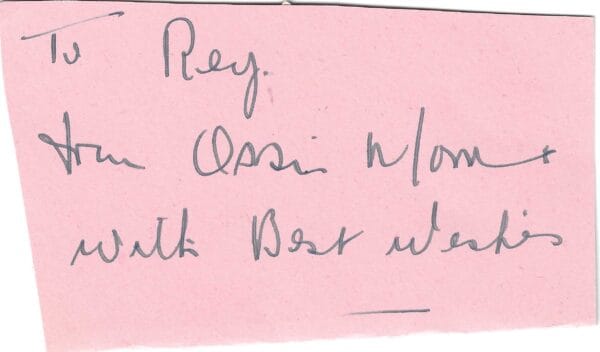 To Reg.
from Ossie Morris
with Best Wishes